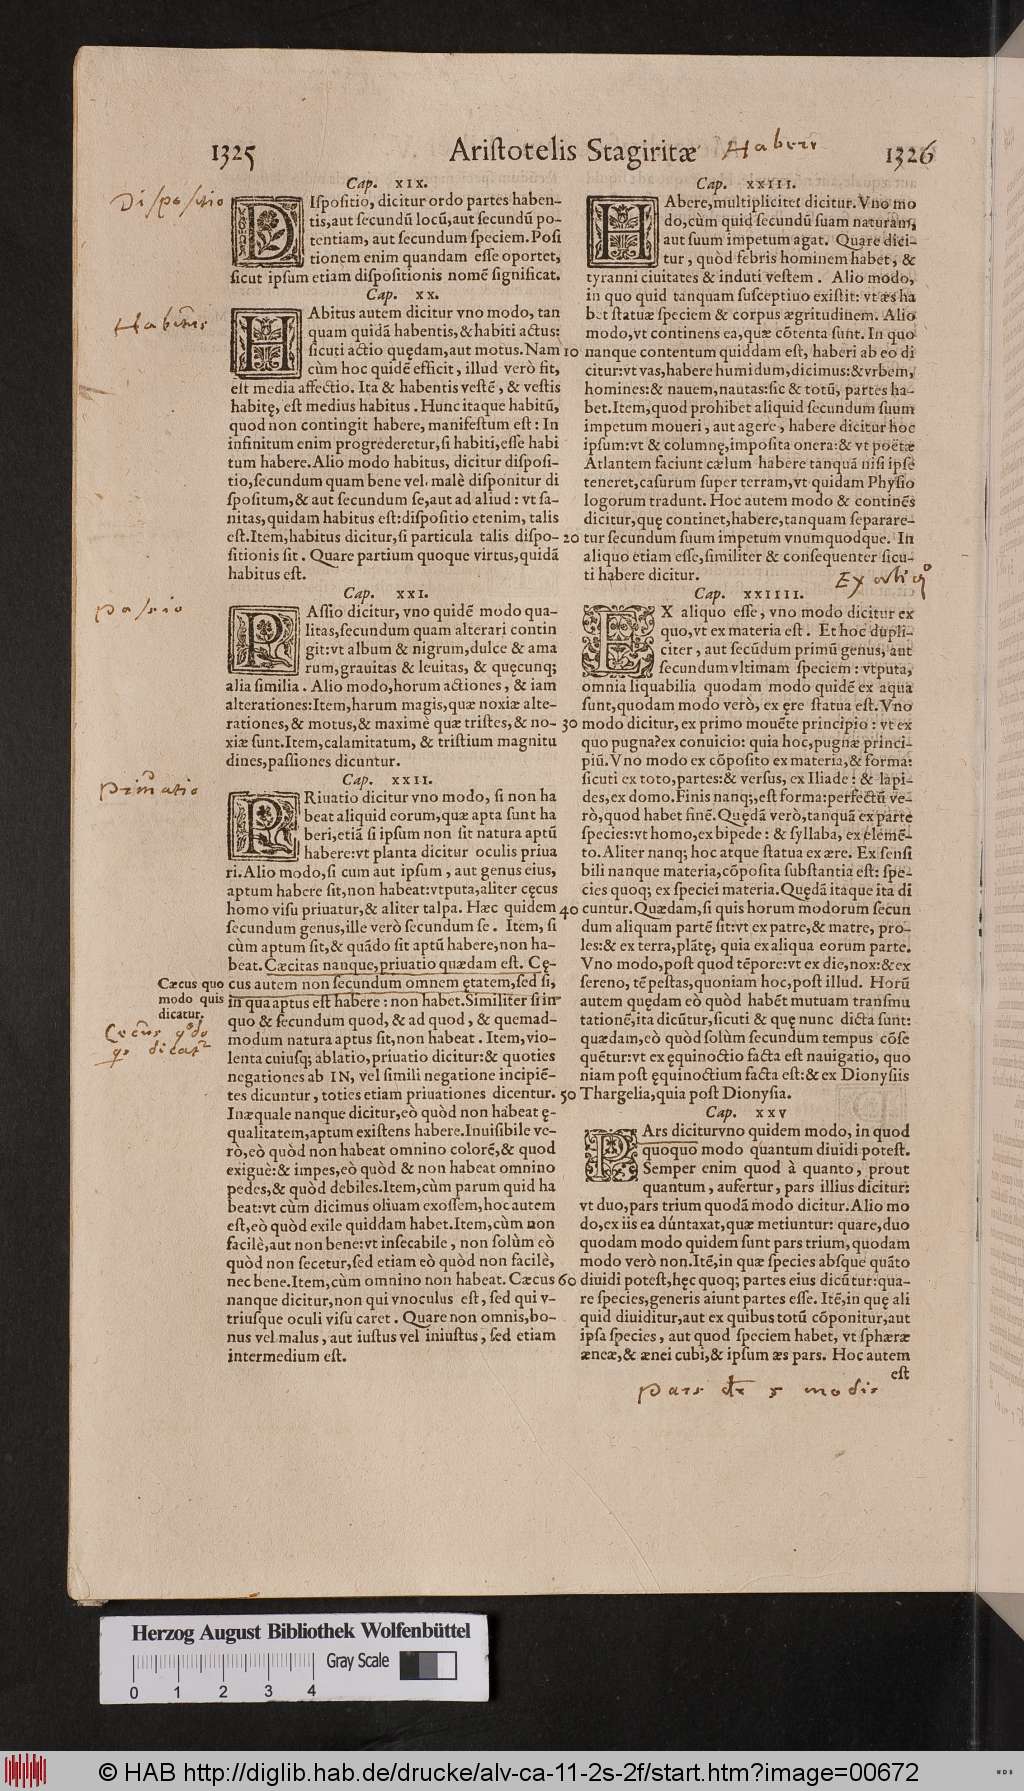 1325
Aristotelis Stagiritæ
Habere
1326
Dispositio
Cap. XIX.
DIſpoſitio, dicitur ordo partes haben-
tis, aut ſecundū locū, aut ſecundū po-
tentiam, aut ſecundum ſpeciem. Poſi
tionem enim quandam eſſe oportet,
ſicut ipſum etiam diſpoſitionis nomē ſignificat.
Cap. XX.
Habitus
HAbitus autem dicitur vno modo, tan
quam quidā habentis, & habiti actus:
ſicuti actio quędam, aut motus. Nam
cùm hoc quidē efficit, illud verò fit,
eſt media affectio. Ita & habentis veſtē, & veſtis
habitę, eſt medius habitus. Hunc itaque habitū,
quod non contingit habere, manifeſtum eſt: In
infinitum enim progrederetur, ſi habiti, eſſe habi
tum habere. Alio modo habitus, dicitur diſpoſi-
tio, ſecundum quam bene vel malè diſponitur di
ſpoſitum, & aut ſecundum ſe, aut ad aliud: vt ſa-
nitas, quidam habitus eſt: diſpoſitio etenim, talis
eſt. Item, habitus dicitur, ſi particula talis diſpo-
ſitionis ſit. Quare partium quoque virtus, quidā
habitus eſt.
Cap. XXI.
Passio
PAſſio dicitur, vno quidē modo qua-
litas, ſecundum quam alterari contin
git: vt album & nigrum, dulce & ama
rum, grauitas & leuitas, & quęcunq;
alia ſimilia. Alio modo, horum actiones, & iam
alterationes: Item, harum magis, quæ noxiæ alte-
rationes, & motus, & maximè quæ triſtes, & no-
xiæ ſunt. Item, calamitatum, & triſtium magnitu
dines, paſſiones dicuntur.
Cap. XXII.
Priuatio
PRiuatio dicitur vno modo, ſi non ha
beat aliquid eorum, quæ apta ſunt ha
beri, etiā ſi ipſum non ſit natura aptū
habere: vt planta dicitur oculis priua
ri. Alio modo, ſi cum aut ipſum, aut genus eius,
aptum habere ſit, non habeat: vtputa, aliter cęcus
homo viſu priuatur, & aliter talpa. Hæc quidem
ſecundum genus, ille verò ſecundum ſe. Item, ſi
cùm aptum ſit, & quādo ſit aptū habere, non ha-
beat. Cæcitas nanque, priuatio quædam eſt. Cę-
cus autem non ſecundum omnem ętatem, ſed ſi,
in qua aptus eſt habere: non habet. Similiter ſi in
quo & ſecundum quod, & ad quod, & quemad-
modum natura aptus ſit, non habeat. Item, vio-
lenta cuiuſq; ablatio, priuatio dicitur: & quoties
negationes ab IN, vel ſimili negatione incipiē-
tes dicuntur, toties etiam priuationes dicentur.
Inæquale nanque dicitur, eò quòd non habeat ę-
qualitatem, aptum exiſtens habere. Inuiſibile ve-
rò, eò quòd non habeat omnino colorē, & quod
exiguè: & impes, eò quòd & non habeat omnino
pedes, & quòd debiles. Item, cùm parum quid ha
beat: vt cùm dicimus oliuam exoſſem, hoc autem
eſt, eò quòd exile quiddam habet. Item, cùm non
facilè, aut non bene: vt inſecabile, non ſolùm eò
quòd non ſecetur, ſed etiam eò quòd non facilè,
nec bene. Item, cùm omnino non habeat. Cæcus
nanque dicitur, non qui vnoculus eſt, ſed qui v-
triuſque oculi viſu caret. Quare non omnis, bo-
nus vel malus, aut iuſtus vel iniuſtus, ſed etiam
intermedium eſt.
Cæcus quo
modo quis
dicatur.
Cecus
10
20
30
40
50
60
Cap. XXIII.
HAbere, multipliciter dicitur. Vno mo
do, cùm quid ſecundū ſuam naturam,
aut ſuum impetum agat. Quare dici-
tur, quòd febris hominem habet, &
tyranni ciuitates & induti veſtem. Alio modo,
in quo quid tanquam ſuſceptiuo exiſtit: vt æs ha
bet ſtatuæ ſpeciem & corpus ægritudinem. Alio
modo, vt continens ea, quæ cōtenta ſunt. In quo
nanque contentum quiddam eſt, haberi ab eo di
citur: vt vas, habere humidum, dicimus: & vrbem,
homines: & nauem, nautas: ſic & totū, partes ha-
bet. Item, quod prohibet aliquid ſecundum ſuum
impetum moueri, aut agere, habere dicitur hoc
ipſum: vt & columnę, impoſita onera: & vt poëtæ
Atlantem faciunt cælum habere tanquā niſi ipſe
teneret, caſurum ſuper terram, vt quidam Phyſio
logorum tradunt. Hoc autem modo & continēs
dicitur, quę continet, habere, tanquam ſeparare-
tur ſecundum ſuum impetum vnumquodque. In
aliquo etiam eſſe, ſimiliter & conſequenter ſicu-
ti habere dicitur.
Cap. XXIIII.
EX aliquo eſſe, vno modo dicitur ex
quo, vt ex materia eſt. Et hoc dupli-
citer, aut ſecūdum primū genus, aut
ſecundum vltimam ſpeciem: vtputa,
omnia liquabilia quodam modo quidē ex aqua
ſunt, quodam modo verò, ex ęre ſtatua eſt. Vno
modo dicitur, ex primo mouēte principio: vt ex
quo pugna? ex conuicio: quia hoc, pugnæ princi-
piū. Vno modo ex cōpoſito ex materia, & forma:
ſicuti ex toto, partes: & verſus, ex Iliade: & lapi-
des, ex domo. Finis nanq;, eſt forma: perfectū ve-
rò, quod habet finē. Quędā verò, tanquā ex parte
ſpecies: vt homo, ex bipede: & ſyllaba, ex elemē-
to. Aliter nanq; hoc atque ſtatua ex ære. Ex ſenſi
bili nanque materia, cōpoſita ſubſtantia eſt: ſpe-
cies quoq; ex ſpeciei materia. Quędā itaque ita di
cuntur. Quædam, ſi quis horum modorum ſecun
dum aliquam partē ſit: vt ex patre, & matre, pro-
les: & ex terra, plātę, quia ex aliqua eorum parte.
Vno modo, poſt quod tēpore: vt ex die, nox: & ex
ſereno, tēpeſtas, quoniam hoc, poſt illud. Horū
autem quędam eò quòd habēt mutuam tranſmu
tationē, ita dicūtur, ſicuti & quę nunc dicta ſunt:
quædam, eò quòd ſolùm ſecundum tempus cōſe
quētur: vt ex ęquinoctio facta eſt nauigatio, quo
niam poſt ęquinoctium facta eſt: & ex Dionyſiis
Thargelia, quia poſt Dionyſia.
Cap. XXV
PArs dicitur vno quidem modo, in quod
quoquo modo quantum diuidi poteſt.
Semper enim quod à quanto, prout
quantum, aufertur, pars illius dicitur:
vt duo, pars trium quodā modo dicitur. Alio mo
do, ex iis ea dúntaxat, quæ metiuntur: quare, duo
quodam modo quidem ſunt pars trium, quodam
modo verò non. Itē, in quæ ſpecies abſque quāto
diuidi poteſt, hęc quoq; partes eius dicūtur: qua-
re ſpecies, generis aiunt partes eſſe. Itē, in quę ali
quid diuiditur, aut ex quibus totū cōponitur, aut
ipſa ſpecies, aut quod ſpeciem habet, vt ſphæræ
æneæ, & ænei cubi, & ipſum æs pars. Hoc autem
eſt
Pars dr 5 modis
Herzog August Bibliothek Wolfenbüttel
Gray Scale
0 1 2 3 4
© HAB http://diglib.hab.de/drucke/alv-ca-11-2s-2f/start.htm?image=00672